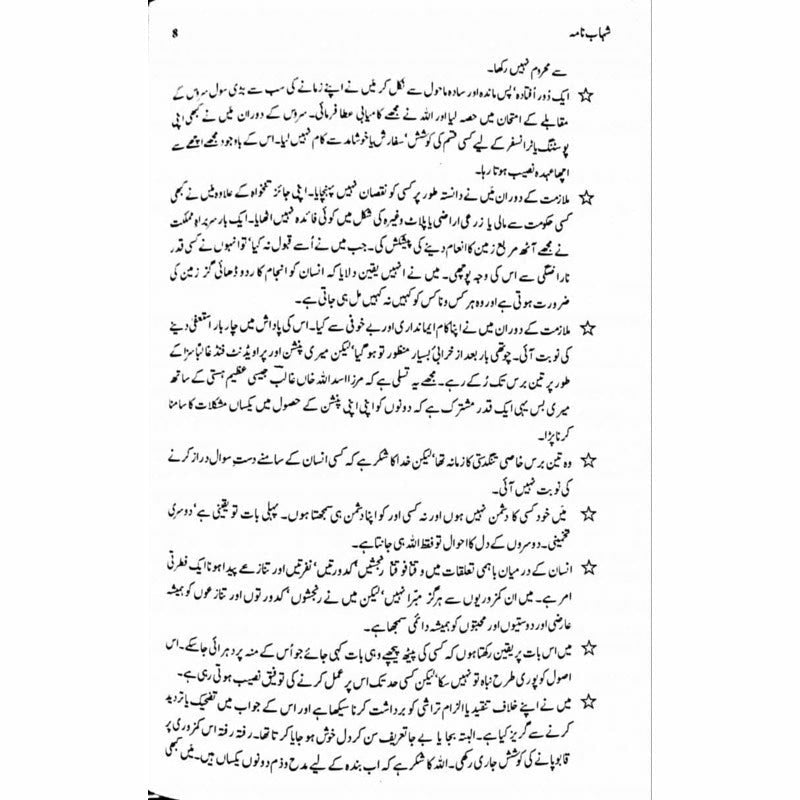 شہاب نامہ 8
سے محروم نہیں رکھا۔
☆ ایک دُور اُفتادہ' پس ماندہ اور سادہ ماحول سے نکل کر میں نے اپنے زمانے کی سب سے بڑی سول سروس کے
مقابلے کے امتحان میں حصہ لیا اور اللہ نے مجھے کامیابی عطا فرمائی۔ سروس کے دوران میں نے کبھی اپنی
پوسٹنگ یا ٹرانسفر کے لیے کسی قسم کی کوشش' سفارش یا خوشامد سے کام نہیں لیا۔ اس کے باوجود مجھے اچھے سے
اچھا عہدہ نصیب ہوتا رہا۔
☆ ملازمت کے دوران میں نے دانستہ طور پر کسی کو نقصان نہیں پہنچایا۔ اپنی جائز تنخواہ کے علاوہ میں نے کبھی
کسی حکومت سے مالی یا زرعی اراضی یا پلاٹ وغیرہ کی شکل میں کوئی فائدہ نہیں اٹھایا۔ ایک بار سربراہِ مملکت
نے مجھے آٹھ مربع زمین کا انعام دینے کی پیشکش کی۔ جب میں نے اُسے قبول نہ کیا' تو انہوں نے کسی قدر
ناراضگی سے اس کی وجہ پوچھی۔ میں نے انہیں یقین دلایا کہ انسان کو انجام کار دو ڈھائی گز زمین کی
ضرورت ہوتی ہے اور وہ ہر کس و ناکس کو کہیں نہ کہیں مل ہی جاتی ہے۔
☆ ملازمت کے دوران میں نے اپنا کام ایمانداری اور بے خوفی سے کیا۔ اس کی پاداش میں چار بار استعفیٰ دینے
کی نوبت آئی۔ چوتھی بار بعد از خرابیٔ بسیار منظور تو ہو گیا' لیکن میری پنشن اور پراویڈنٹ فنڈ غالباً سزا کے
طور پر تین برس تک رُکے رہے۔ مجھے یہ تسلی ہے کہ مرزا اسد اللہ خاں غالبؔ جیسی عظیم ہستی کے ساتھ
میری بس یہی ایک قدر مشترک ہے کہ دونوں کو اپنی اپنی پنشن کے حصول میں یکساں مشکلات کا سامنا
کرنا پڑا۔
☆ وہ تین برس خاصی تنگدستی کا زمانہ تھا' لیکن خدا کا شکر ہے کہ کسی انسان کے سامنے دستِ سوال دراز کرنے
کی نوبت نہیں آئی۔
☆ میں خود کسی کا دشمن نہیں ہوں اور نہ کسی اور کو اپنا دشمن ہی سمجھتا ہوں۔ پہلی بات تو یقینی ہے' دوسری
تخمینی۔ دوسروں کے دل کا احوال تو فقط اللہ ہی جانتا ہے۔
☆ انسان کے درمیان باہمی تعلقات میں وقتاً فوقتاً رنجشیں' کدورتیں' نفرتیں اور تنازعے پیدا ہونا ایک فطرتی
امر ہے۔ میں ان کمزوریوں سے ہرگز مبّرا نہیں' لیکن میں نے رنجشوں' کدورتوں اور تنازعوں کو ہمیشہ
عارضی اور دوستیوں اور محبتوں کو ہمیشہ دائمی سمجھا ہے۔
☆ میں اس بات پر یقین رکھتا ہوں کہ کسی کی پیٹھ پیچھے وہی بات کہی جائے جو اُس کے منہ پر دہرائی جا سکے۔ اس
اصول کو پوری طرح نباہ تو نہیں سکا' لیکن کسی حد تک اس پر عمل کرنے کی توفیق نصیب ہوتی رہی ہے۔
☆ میں نے اپنے خلاف تنقید یا الزام تراشی کو برداشت کرنا سیکھا ہے اور اس کے جواب میں تضحیک یا تردید
کرنے سے گریز کیا ہے۔ البتہ بجا یا بے جا تعریف سن کر دل خوش ہو جایا کرتا تھا۔ رفتہ رفتہ اس کمزوری پر
قابو پانے کی کوشش جاری رکھی۔ اللہ کا شکر ہے کہ اب بندہ کے لیے مدح و ذم دونوں یکساں ہیں۔ میں کبھی